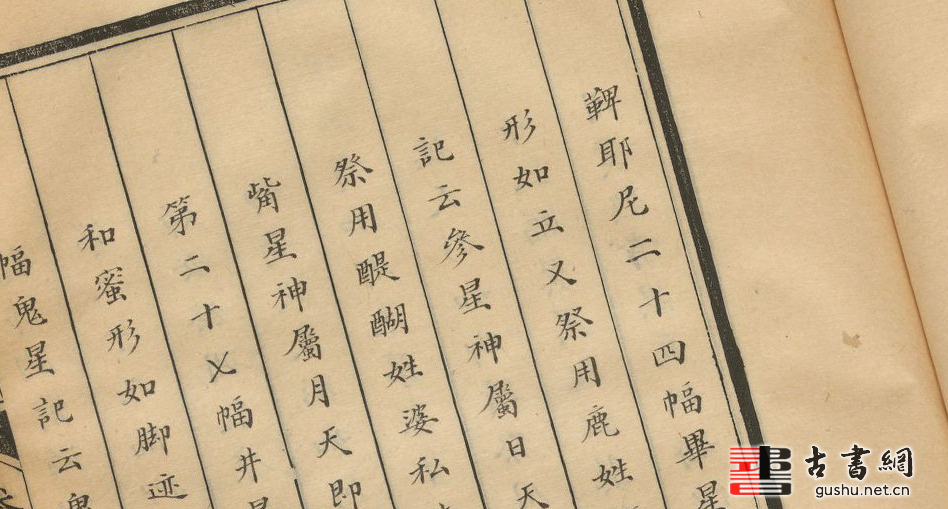 鞞耶尼二十四幅畢星
形如立叉祭用鹿姓
記云參星神屬日天
祭用醍醐姓婆私
觜星神屬月天即
第二十乂幅井星
和蜜形如脚迹
幅鬼星記云鬼
古書網
gushu.net.cn